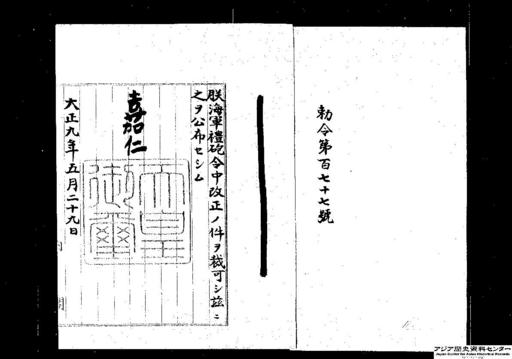 勅令第百七十七號
朕海軍禮砲令中改正ノ件ヲ裁可シ茲ニ
之ヲ公布セシム
嘉仁
天皇御璽
大正九年五月二十九日
アジア歴史資料センター
Japan Center for Asian Historical Records